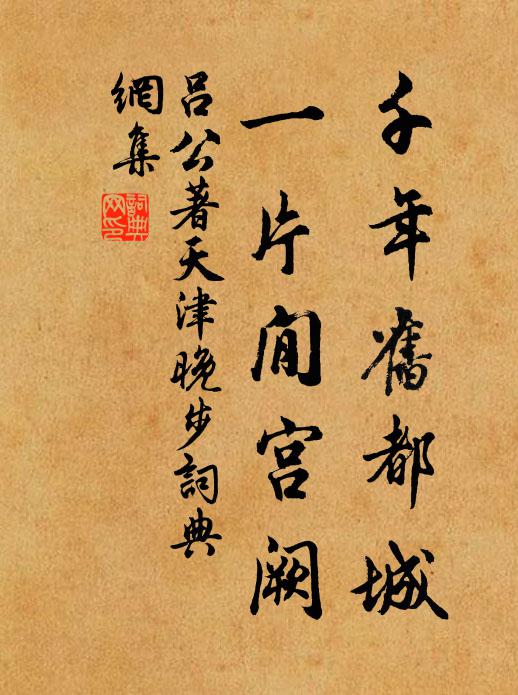 千年舊都城
一片閒宫阙
呂公著天津晚步詞典
網集
詞典網印